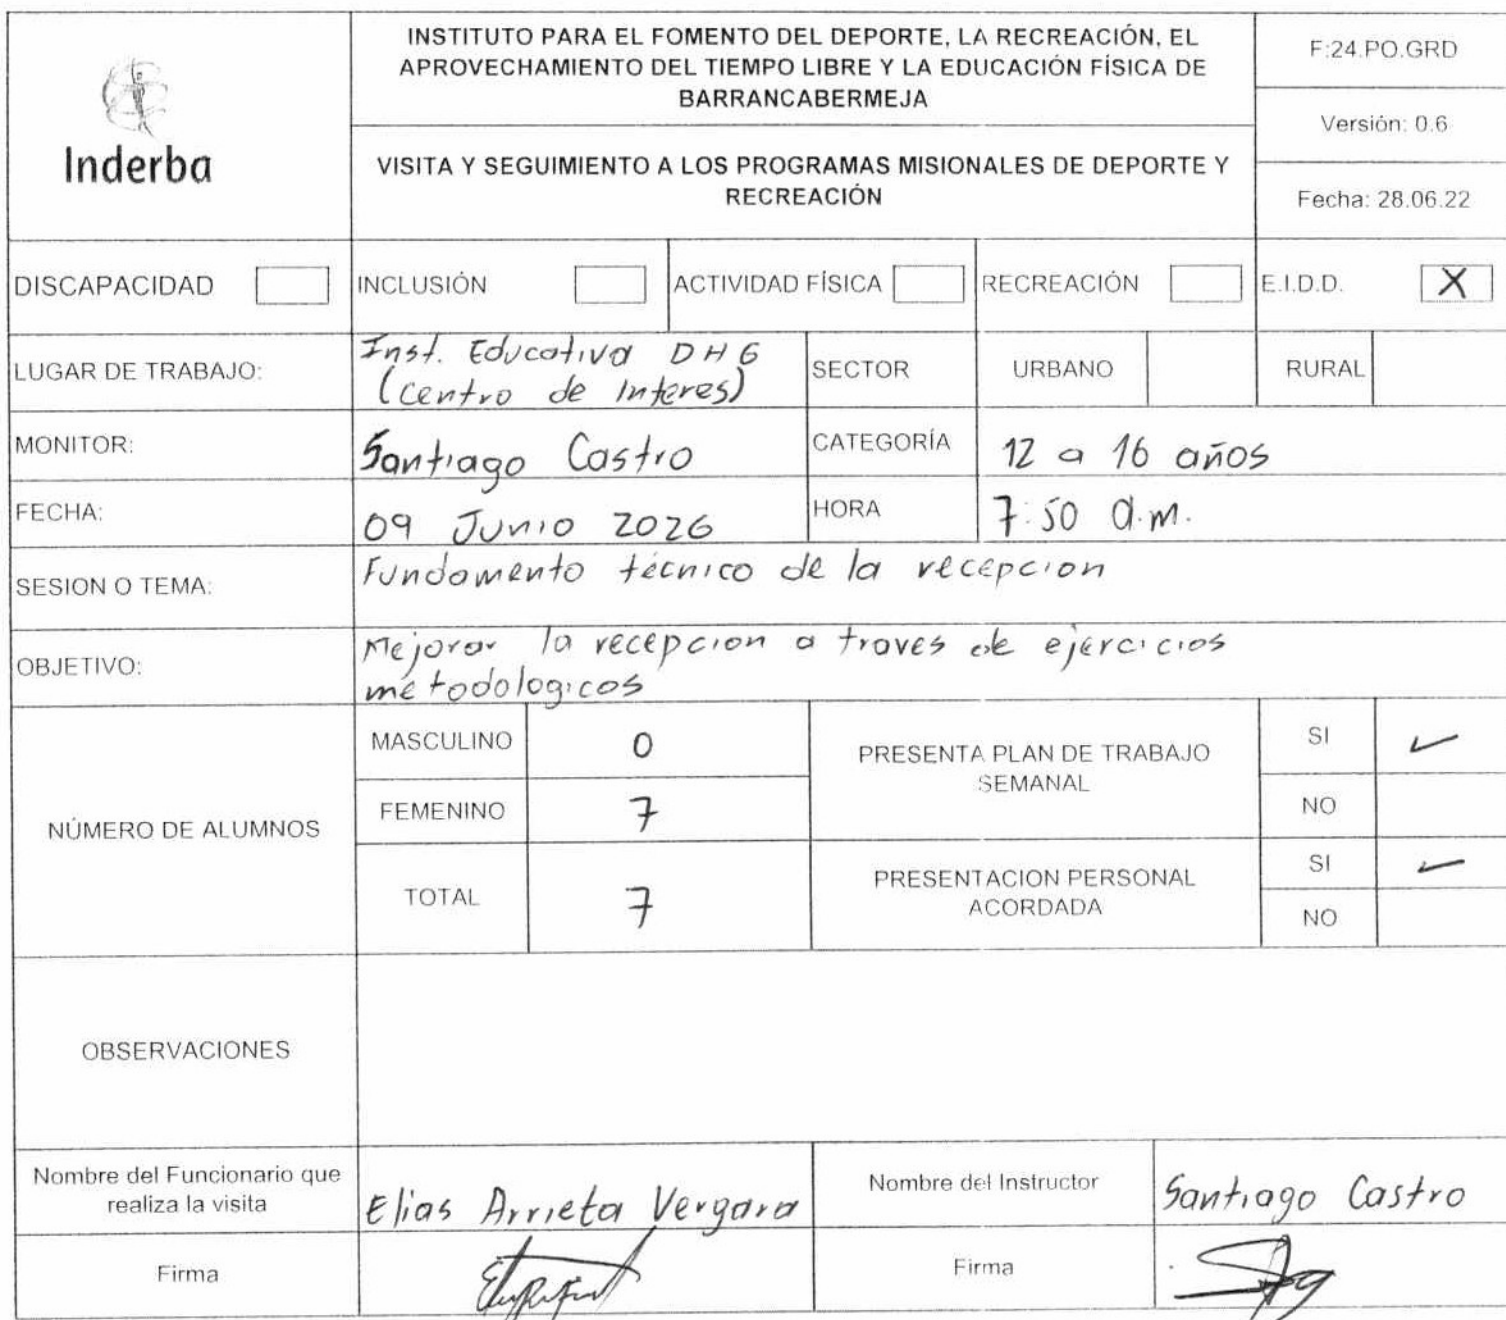 Inderba
INSTITUTO PARA EL FOMENTO DEL DEPORTE, LA RECREACIÓN, EL
APROVECHAMIENTO DEL TIEMPO LIBRE Y LA EDUCACIÓN FÍSICA DE
BARRANCABERMEJA
VISITA Y SEGUIMIENTO A LOS PROGRAMAS MISIONALES DE DEPORTE Y
RECREACIÓN
F:24.PO.GRD
Versión: 0.6
Fecha: 28.06.22
DISCAPACIDAD INCLUSIÓN ACTIVIDAD FÍSICA RECREACIÓN E.I.D.D. X
LUGAR DE TRABAJO: Inst. Educativa DHG
(Centro de Interes)
SECTOR URBANO RURAL
MONITOR: Santiago Castro CATEGORÍA 12 a 16 años
FECHA: 09 Junio 2026 HORA 7:50 a.m.
SESION O TEMA: Fundamento técnico de la recepcion
OBJETIVO: Mejorar la recepcion a traves de ejercicios
metodologicos
NÚMERO DE ALUMNOS
MASCULINO 0
FEMENINO 7
TOTAL 7
PRESENTA PLAN DE TRABAJO
SEMANAL
SI ✓
NO
PRESENTACION PERSONAL
ACORDADA
SI ✓
NO
OBSERVACIONES
Nombre del Funcionario que
realiza la visita
Elias Arrieta Vergara
Nombre del Instructor
Santiago Castro
Firma
Firma